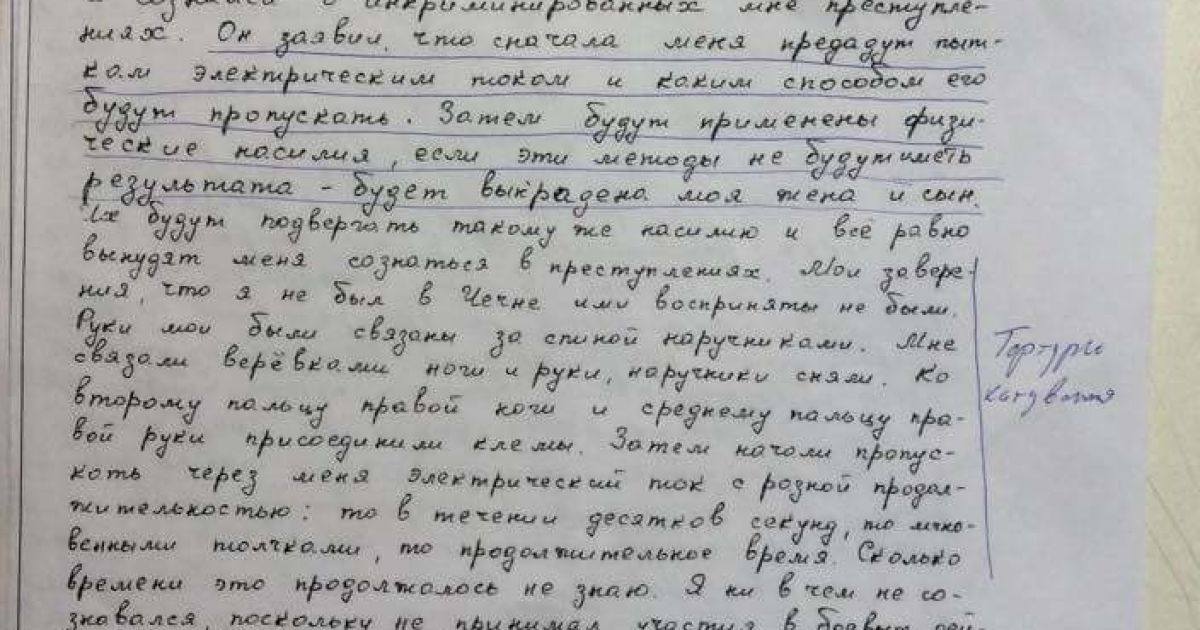 и сознайся в инкриминированных мне преступле-
ниях. Он заявил, что сначала меня предадут пыт-
кам электрическим током и каким способом его
будут пропускать. Затем будут применены физи-
ческие насилия, если эти методы не будут иметь
результата - будет выкрадена моя жена и сын.
Их будут подвергать такому же насилию и всё равно
вынудят меня сознаться в преступлениях. Мои завере-
ния, что я не был в Чечне ими восприняты не были.
Руки мои были связаны за спиной наручниками. Мне
связали верёвками ноги и руки, наручники сняли. Ко
второму пальцу правой ноги и среднему пальцу пра-
вой руки присоединили клемы. Затем начали пропус-
кать через меня электрический ток с разной продол-
жительностью: то в течении десятков секунд, то мгно-
венными толчками, то продолжительное время. Сколько
времени это продолжалось не знаю. Я ни в чем не со-
знавался, поскольку не принимал участия в боевых дей-
Тортури
катування